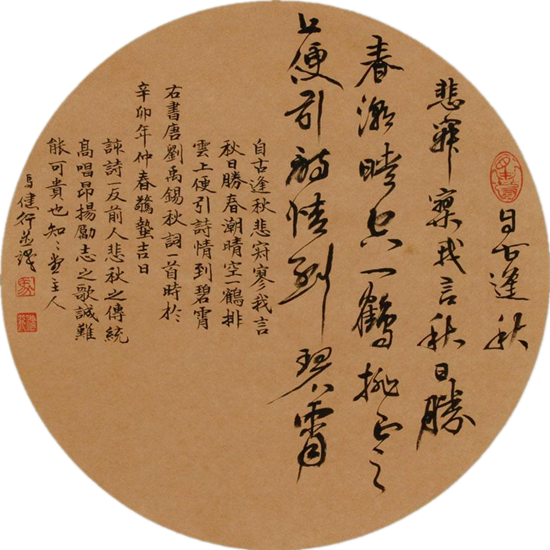 自古逢秋
悲寂寥我言秋日勝
春潮晴空一鶴排云
上便引詩情到碧霄
自古逢秋悲寂寥我言
秋日勝春潮晴空一鶴排
雲上便引詩情到碧霄
右書唐劉禹錫秋詞一首時於
辛卯年仲春驚蟄吉日
該詩一反前人悲秋之傳統
高唱昂揚勵志之歌誠難
能可貴也知々堂主人
馬健行並識